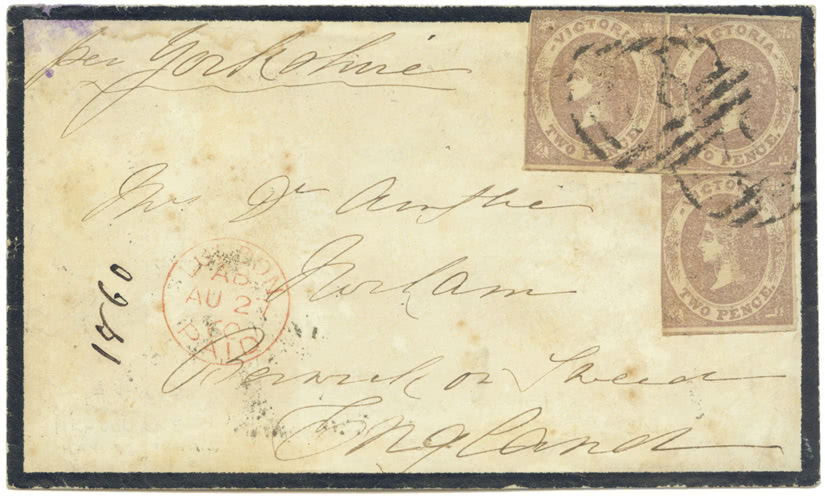 per Yorkshire
VICTORIA
TWO PENCE.
VICTORIA
TWO PENCE.
VICTORIA
TWO PENCE.
Mrs Dr Ainslie
Norham
Berwick on Tweed
England
1860
LONDON
AB
AU 2
60
PAID